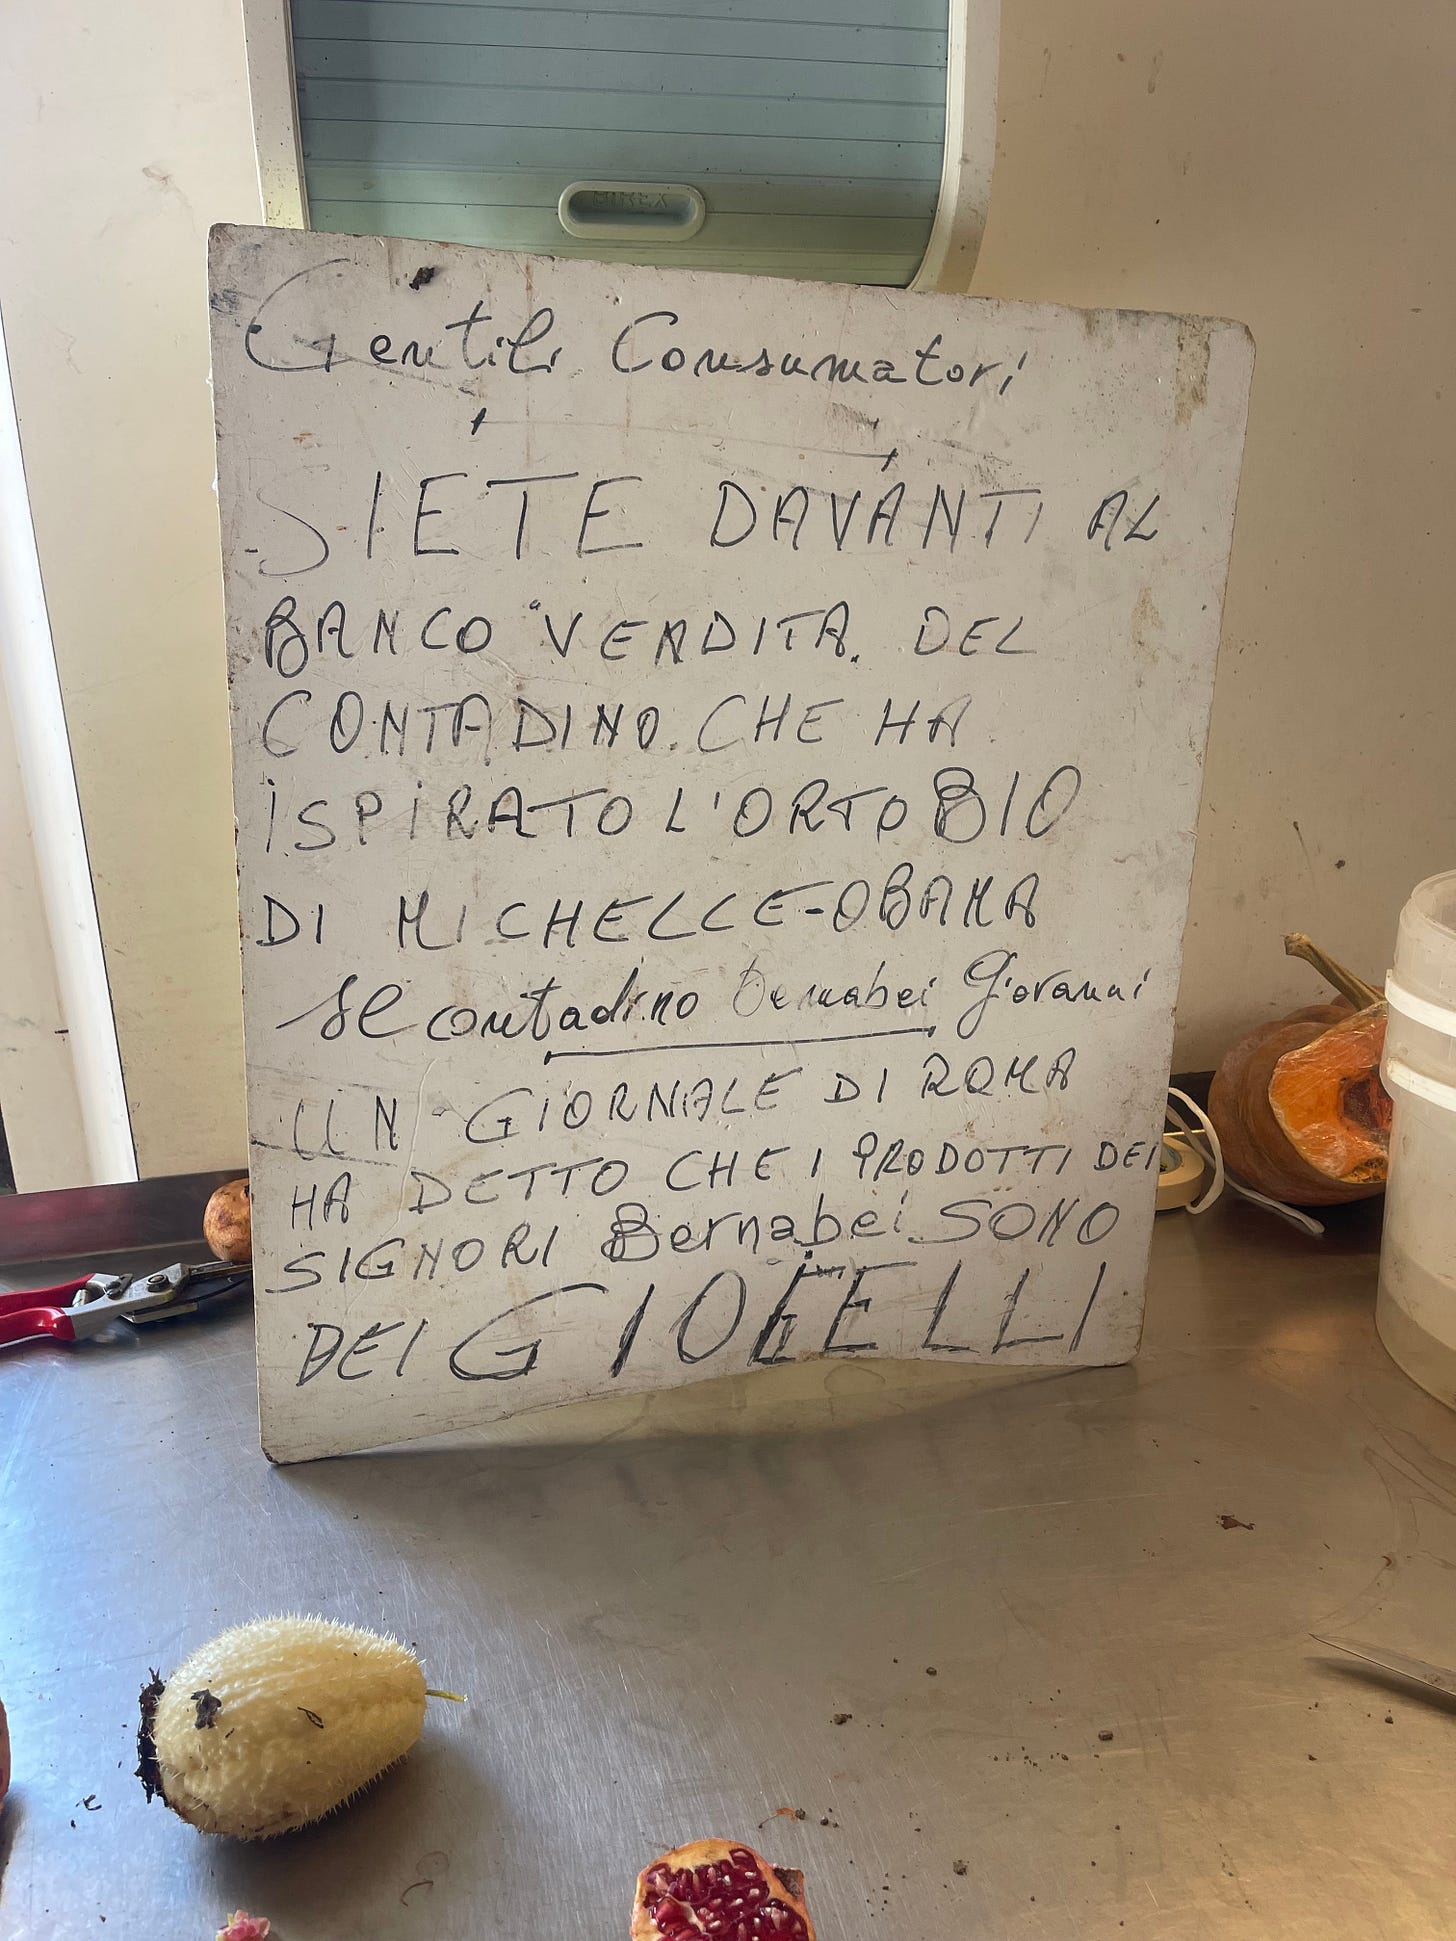 BIREX
Gentili Consumatori
SIETE DAVANTI AL
BANCO VENDITA. DEL
CONTADINO. CHE HA
iSPiRATO L'ORTO BIO
DI MICHELLE-OBAMA
Il contadino Bernabei Giovanni
UN GIORNALE DI ROMA
HA DETTO CHE I PRODOTTI DEI
SIGNORI Bernabei SONO
DEI GIOIELLI